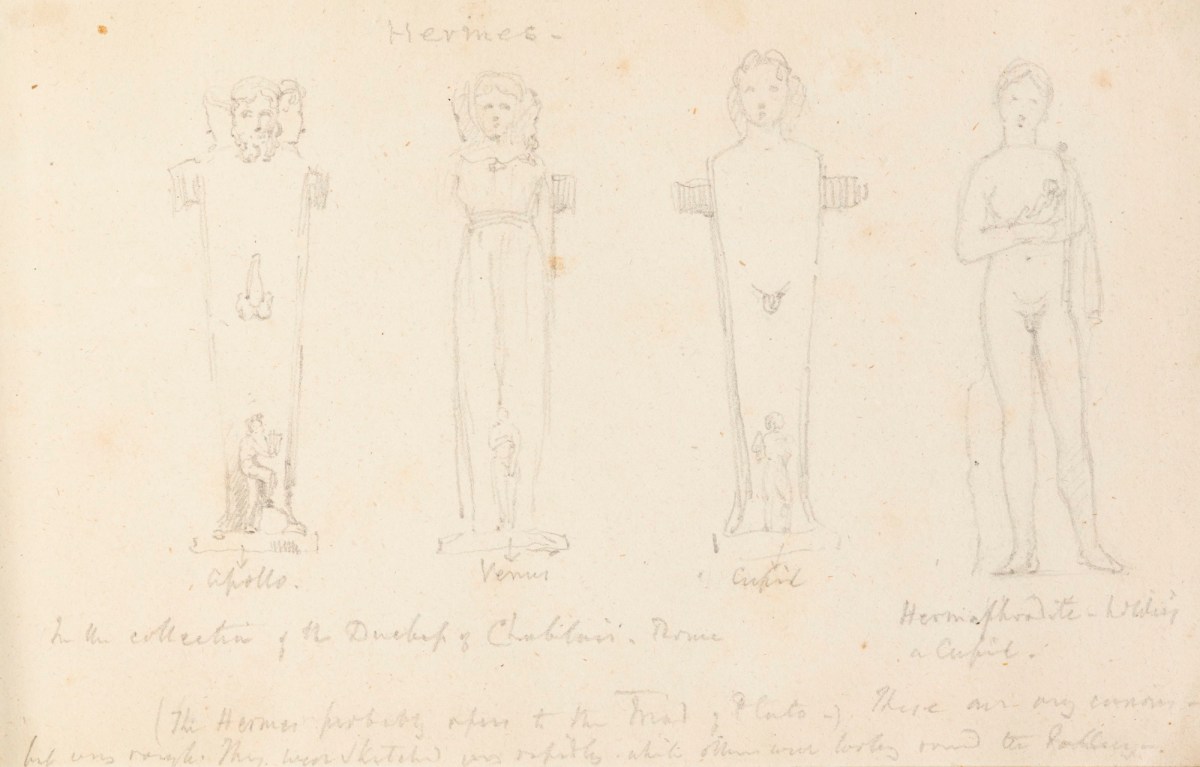 Hermes -
Apollo.
Venus
Cupid
In the collection of the Duchess of Chablais. Rome
Hermaphrodite - holding
a Cupid.
(The Hermes probably refers to the Triad of Plato -) These are very curious -
but very rough. They were sketched very rapidly while others were looking round the